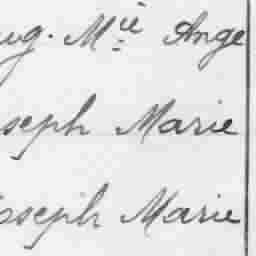 ug. M^ie Ange
seph Marie
oseph Marie